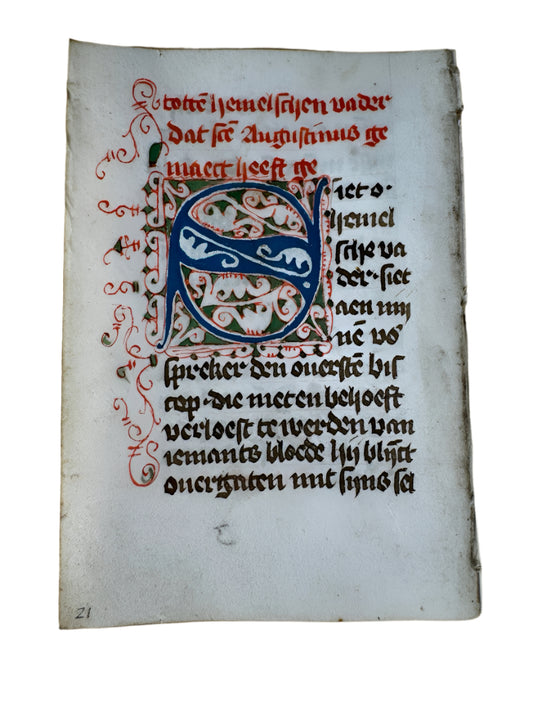 tottē hemelschen vader
dat scē Augustinus ge
maect heeft ge
Siet o·
hemel
sche va
der· siet
aen mij
nē vo
spreker den ouerstē bis
cop· die niet en behoeft
verloest te werden van
iemants bloede hij blijct
ouergaten mit sijns sel
21